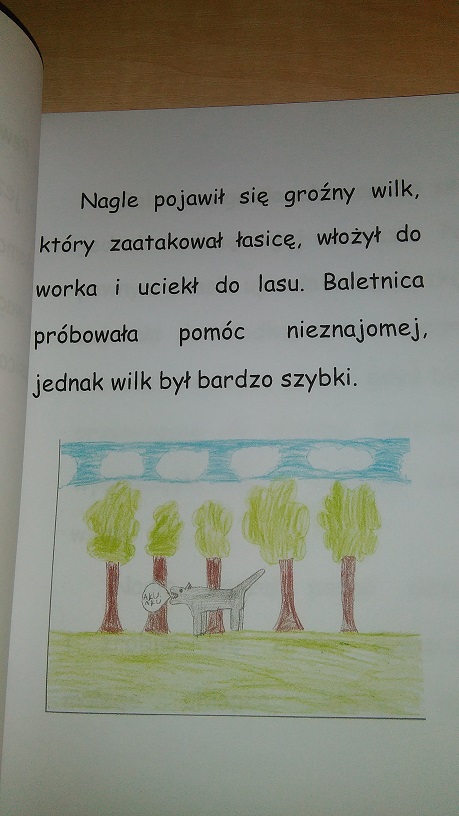 Nagle pojawił się groźny wilk,
który zaatakował łasicę, włożył do
worka i uciekł do lasu. Baletnica
próbowała pomóc nieznajomej,
jednak wilk był bardzo szybki.